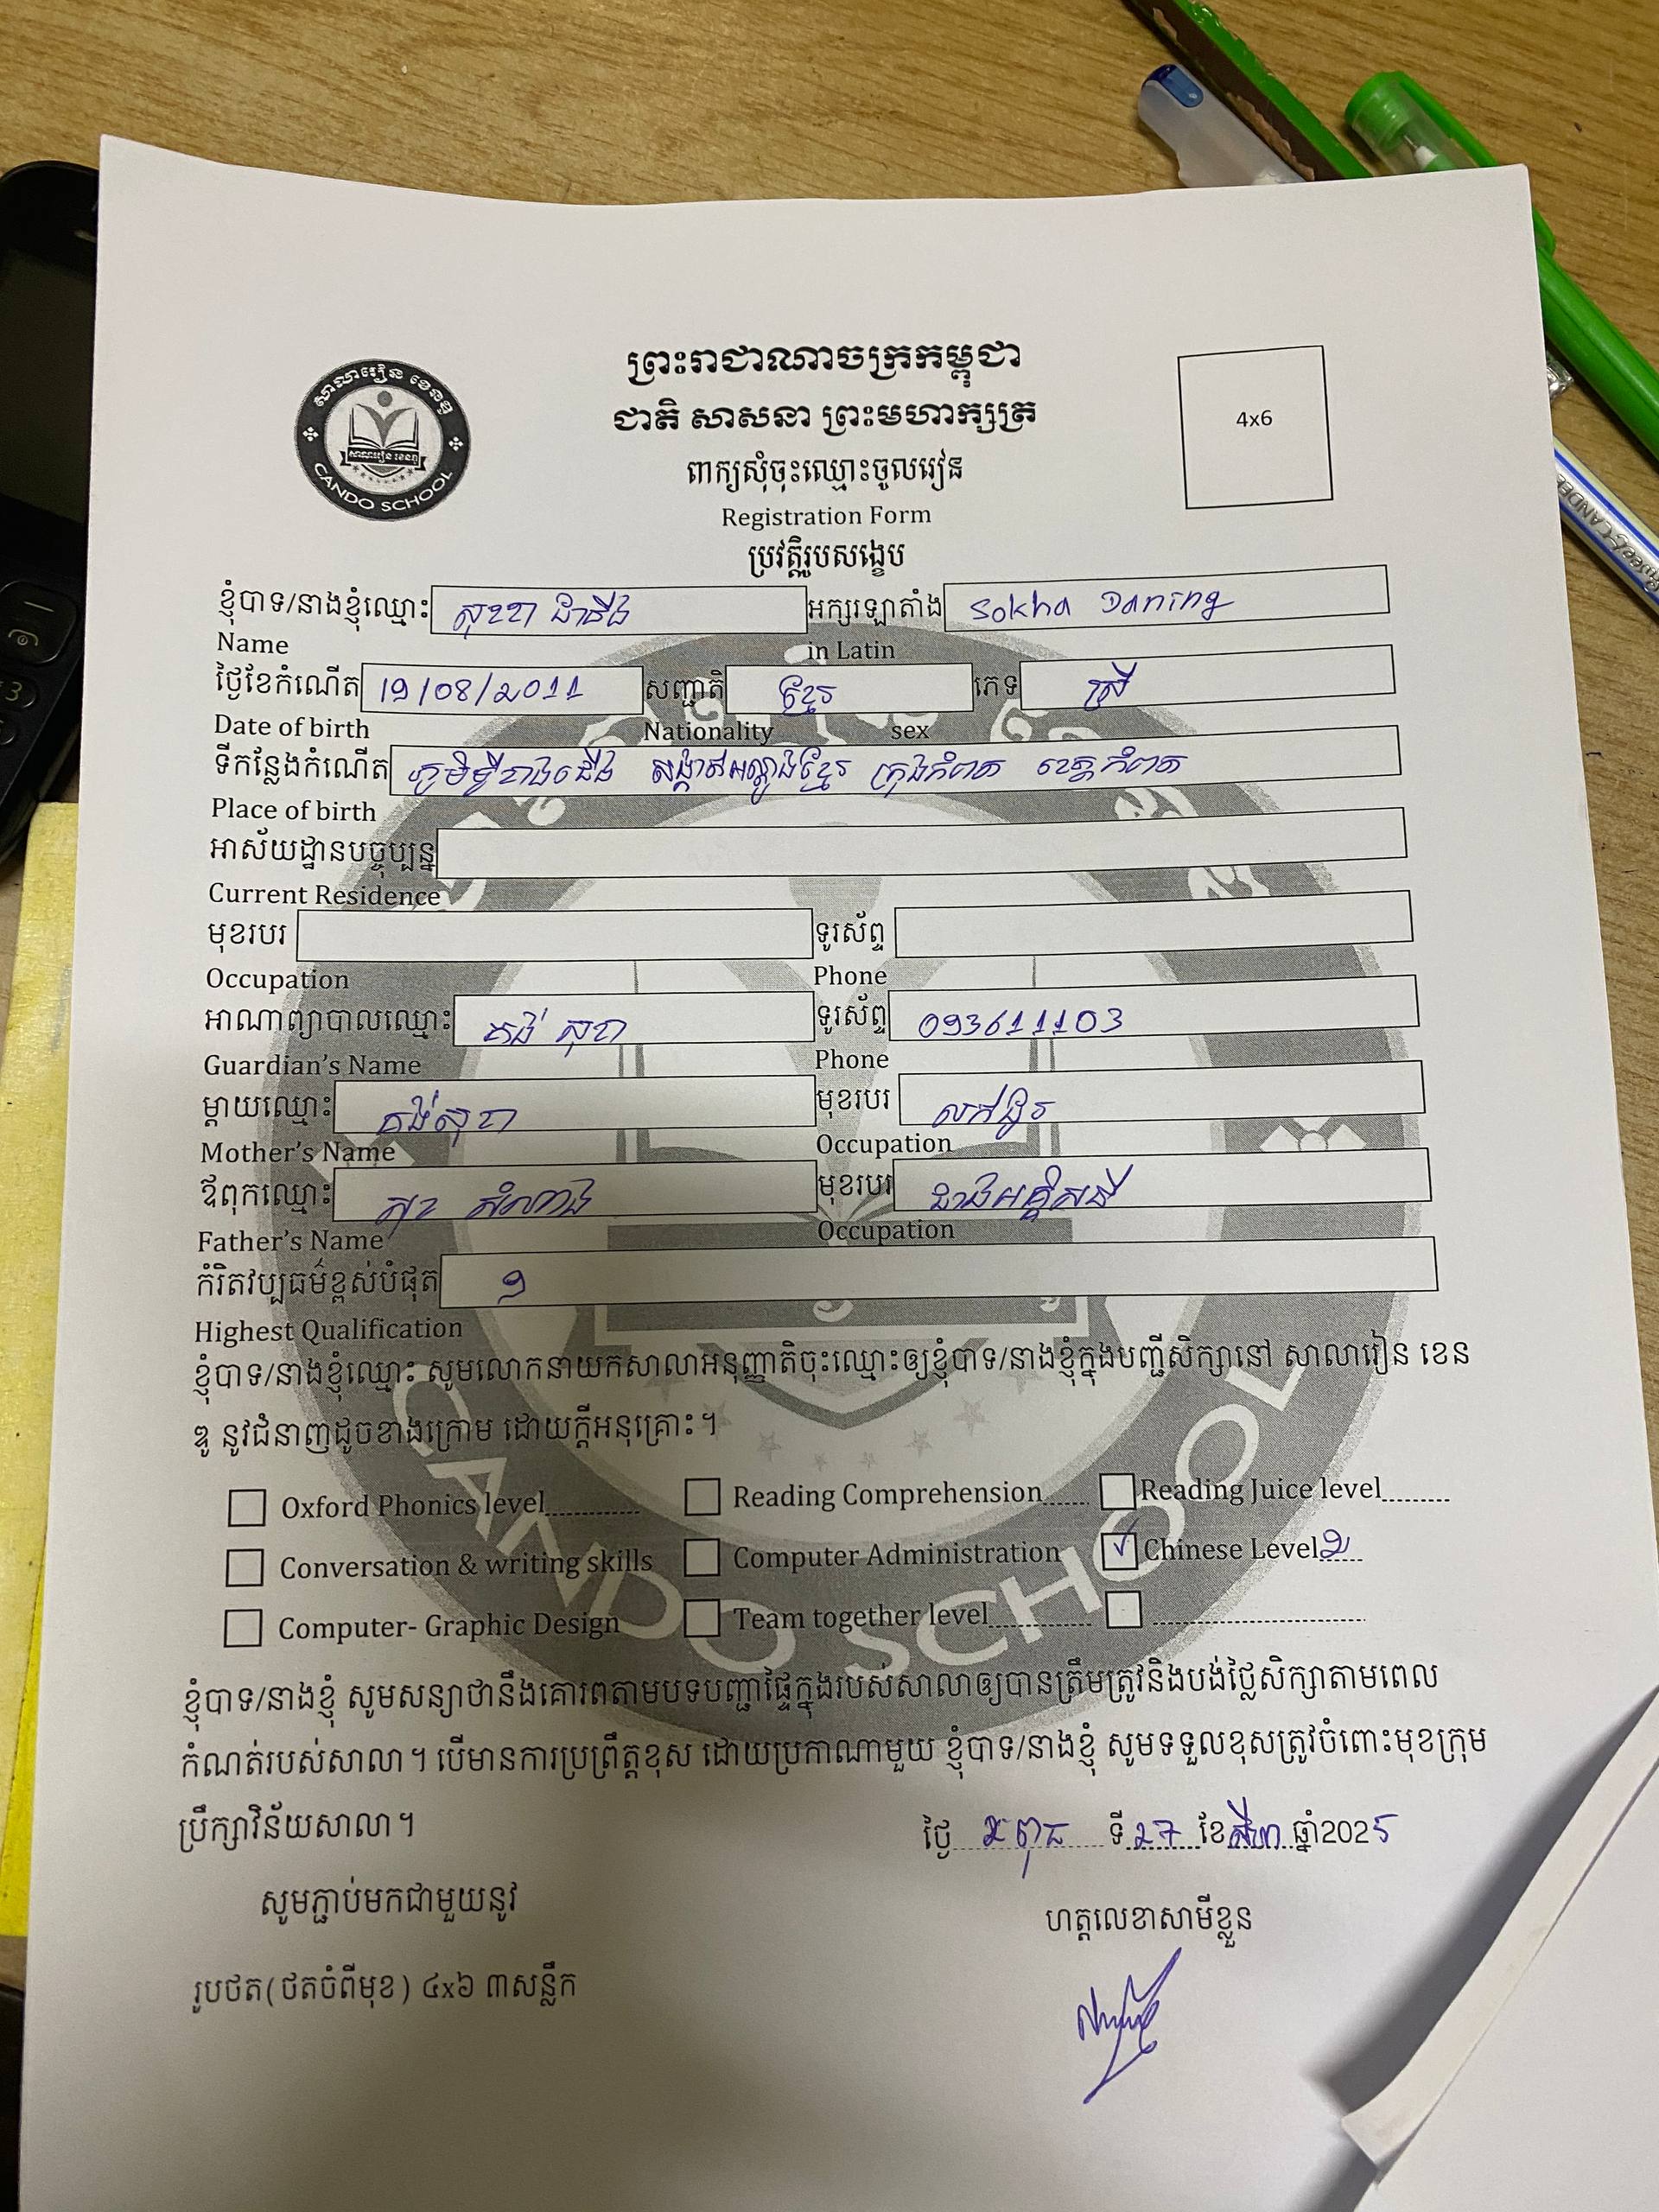 សាលារៀន ខេនឌូ
សាលារៀន ខេនឌូ
CANDO SCHOOL
ព្រះរាជាណាចក្រកម្ពុជា
ជាតិ សាសនា ព្រះមហាក្សត្រ
4x6
ពាក្យសុំចុះឈ្មោះចូលរៀន
Registration Form
ប្រវត្តិរូបសង្ខេប
ខ្ញុំបាទ/នាងខ្ញុំឈ្មោះ សុខខា ដានីង អក្សរឡាតាំង Sokha Daning
Name in Latin
ថ្ងៃខែកំណើត 19/08/2011 សញ្ជាតិ ខ្មែរ ភេទ ស្រី
Date of birth Nationality sex
ទីកន្លែងកំណើត ភូមិ ខាងជើង សង្កាត់អណ្ដូងខ្មែរ ក្រុងកំពត ខេត្តកំពត
Place of birth
អាស័យដ្ឋានបច្ចុប្បន្ន
Current Residence
មុខរបរ ទូរស័ព្ទ
Occupation Phone
អាណាព្យាបាលឈ្មោះ គង់ សុខា ទូរស័ព្ទ 093611103
Guardian's Name Phone
ម្ដាយឈ្មោះ គង់ សុខា មុខរបរ លក់ដូរ
Mother's Name Occupation
ឪពុកឈ្មោះ សុខ សំណាង មុខរបរ ជាងអគ្គិសនី
Father's Name Occupation
កំរិតវប្បធម៌ខ្ពស់បំផុត 9
Highest Qualification
ខ្ញុំបាទ/នាងខ្ញុំឈ្មោះ សូមលោកនាយកសាលាអនុញ្ញាតិចុះឈ្មោះឲ្យខ្ញុំបាទ/នាងខ្ញុំក្នុងបញ្ជីសិក្សានៅ សាលារៀន ខេន
ឌូ នូវជំនាញដូចខាងក្រោម ដោយក្ដីអនុគ្រោះ។
Oxford Phonics level............... Reading Comprehension....... Reading Juice level..........
Conversation & writing skills Computer Administration ✓ Chinese Level 2
Computer- Graphic Design Team together level............... ...............................
ខ្ញុំបាទ/នាងខ្ញុំ សូមសន្យាថានឹងគោរពតាមបទបញ្ជាផ្ទៃក្នុងរបស់សាលាឲ្យបានត្រឹមត្រូវនិងបង់ថ្លៃសិក្សាតាមពេល
កំណត់របស់សាលា។ បើមានការប្រព្រឹត្តខុស ដោយប្រកាណាមួយ ខ្ញុំបាទ/នាងខ្ញុំ សូមទទួលខុសត្រូវចំពោះមុខក្រុម
ប្រឹក្សាវិន័យសាលា។
ថ្ងៃ ពុធ ទី 27 ខែ សីហា ឆ្នាំ2025
សូមភ្ជាប់មកជាមួយនូវ
ហត្ថលេខាសាមីខ្លួន
រូបថត(ថតចំពីមុខ) ៤x៦ ៣សន្លឹក